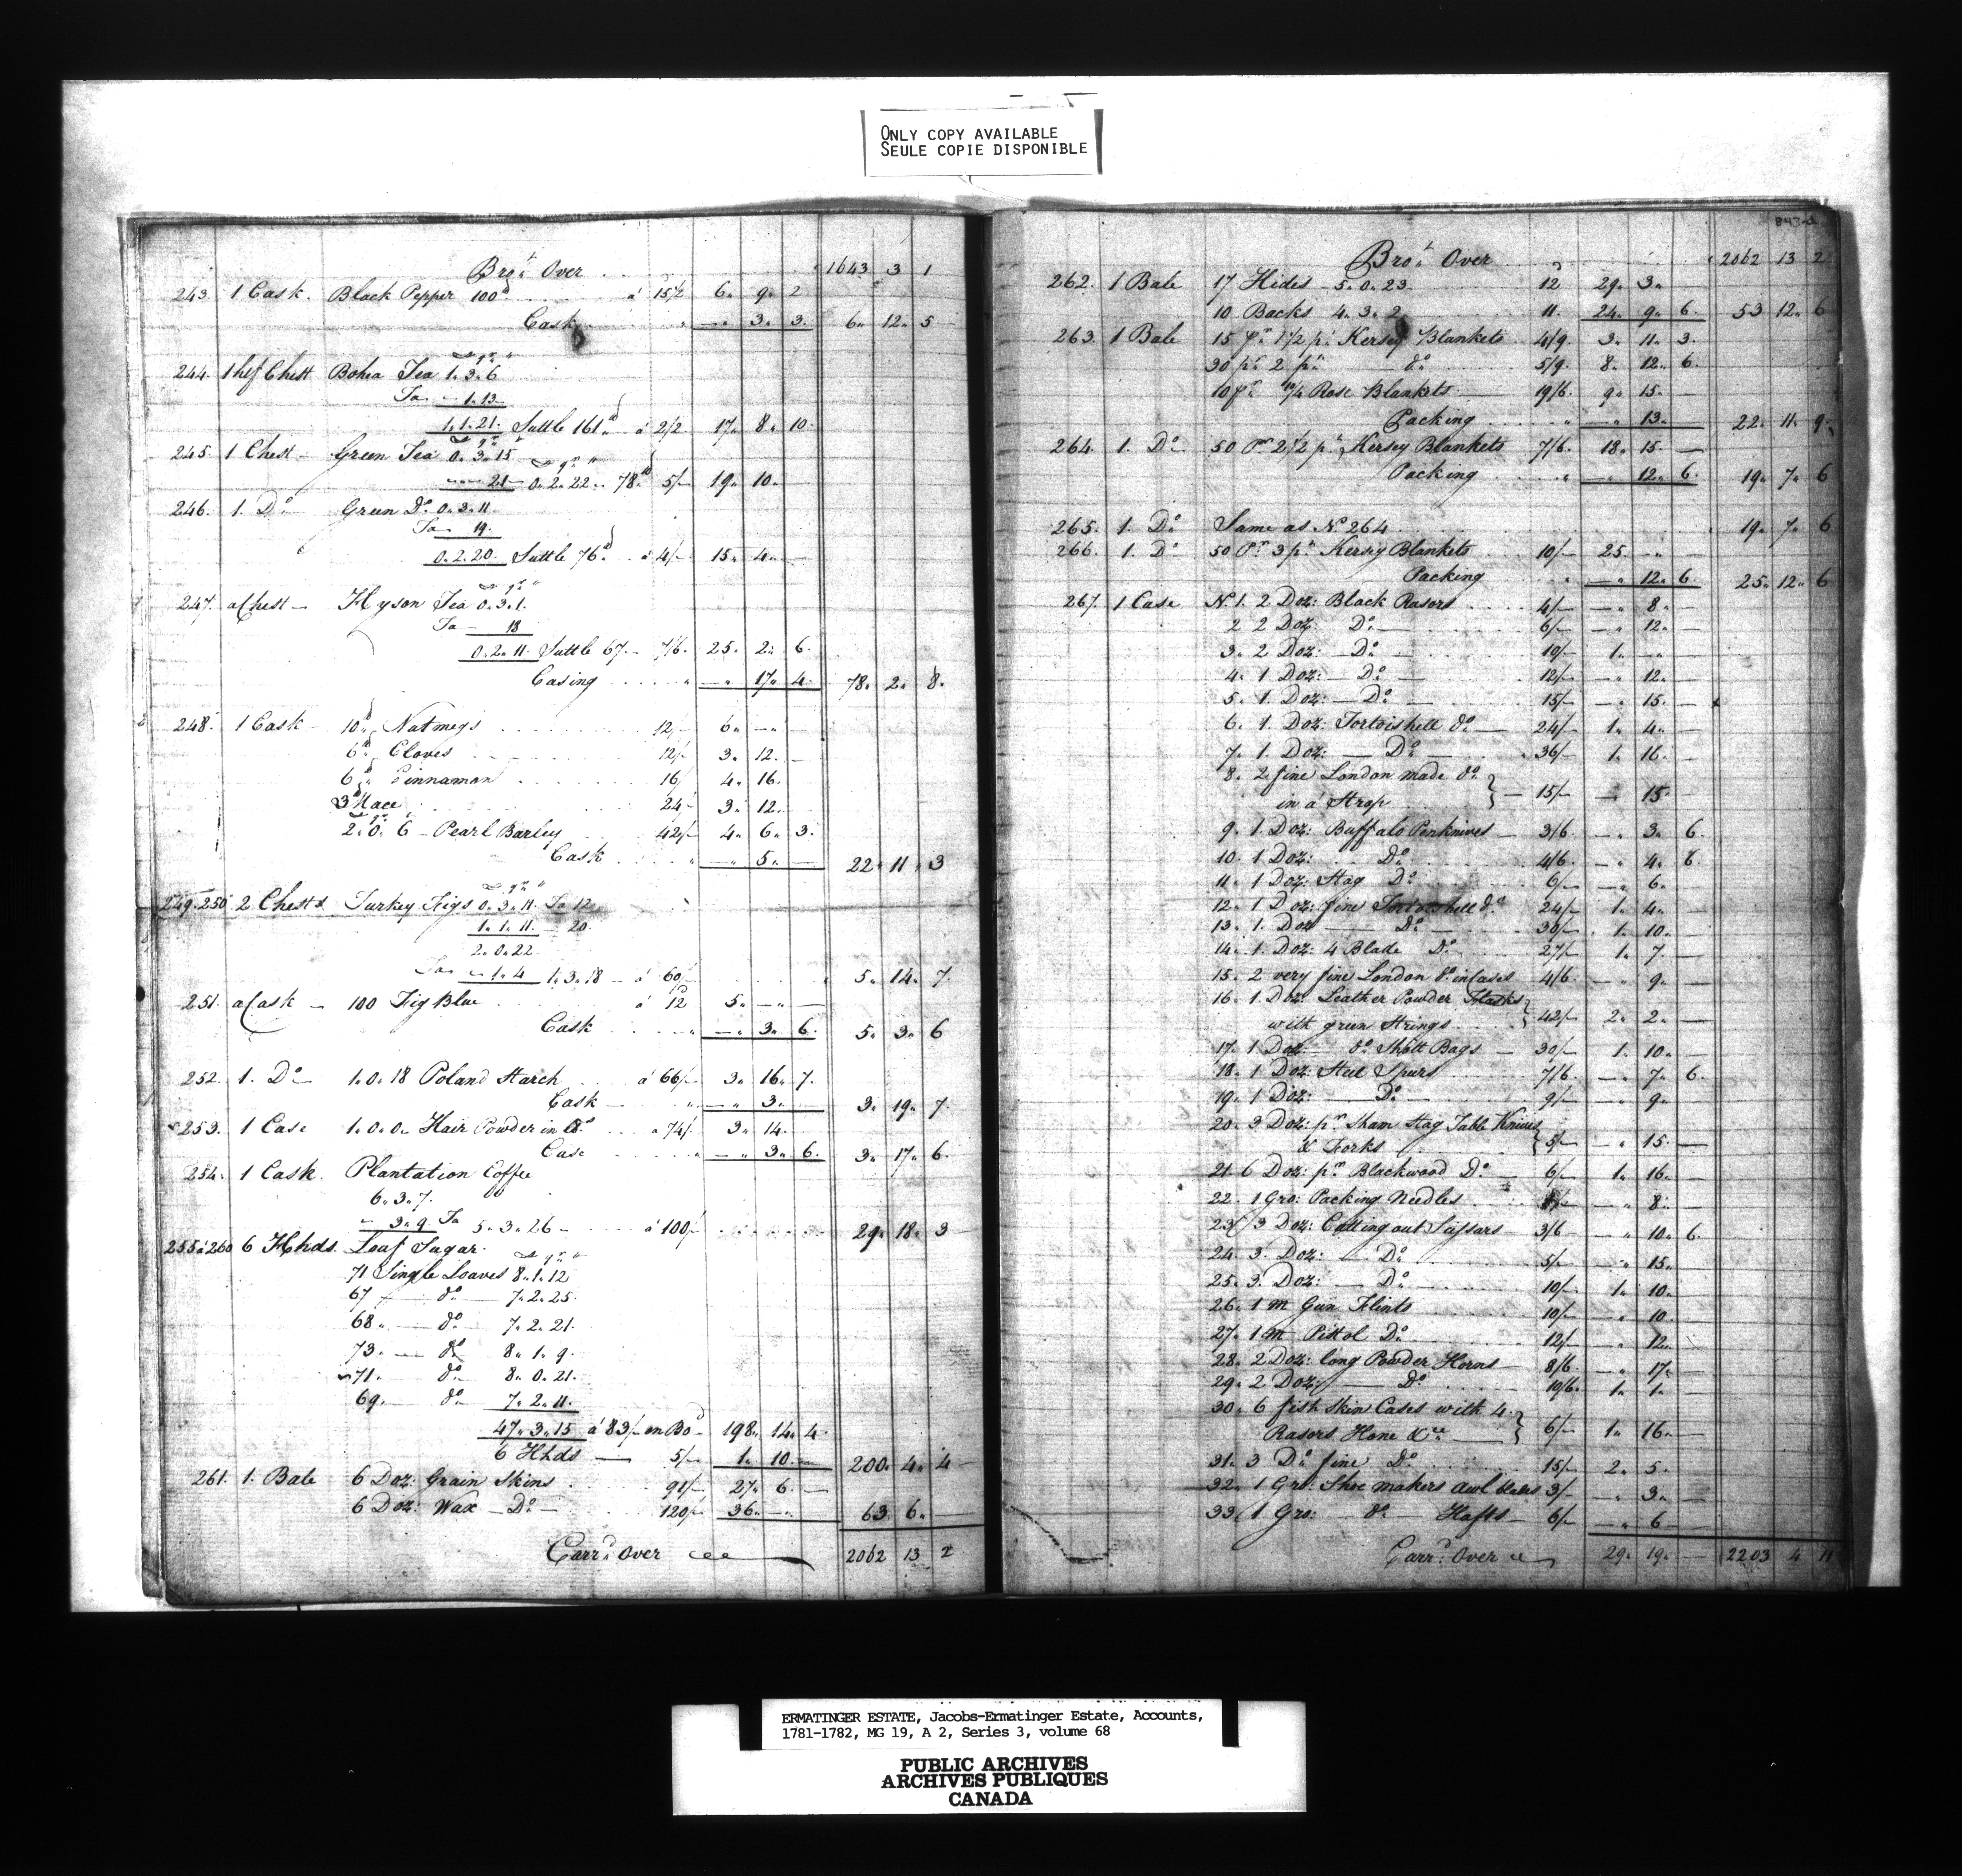 ONLY COPY AVAILABLE
SEULE COPIE DISPONIBLE
Bro.t Over 1643 3 1
243. 1 Cask. Black Pepper 100 lb á 15½ 6 9 2
Cask — 3 3. 6 12 5
244. 1 hlf Chest Bohea Tea 1. 3. 6
Ta — 1. 13
1. 1. 21. Suttle 161 lb á 2/2 17 8 10
245. 1 Chest — Green Tea 0. 3. 15
— 21 — 0. 2. 22 — 78 lb 5/- 19 10
246. 1. Do Green Do 0. 3. 11.
Ta — 19.
0. 2. 20. Suttle 76 lb á 4/- 15 4 —
247. a Chest — Hyson Tea 0. 3. 1.
Ta — 18
0. 2. 11. Suttle 67 — 7/6. 25 2 6.
Casing — 17 4. 78. 2 8.
248. 1 Cask — 10 lb Nutmegs 12/- 6 — —
6 lb Cloves 12/- 3. 12. —
6 lb Cinnamon 16/ 4 16.
3 lb Mace 24/- 3 12.
2. 0. 6 — Pearl Barley 42/- 4 6 3.
Cask — 5 — 22 11 3
249. 250 2 Chests Turkey Figs 0. 3. 11. Ta 12
1. 1. 11. — 20.
2. 0. 22
Ta — 1. 4 1. 3. 18 — á 60/ 5. 14. 7.
251. a Cask — 100 Fig Blue á 12d 5 — —
Cask — 3 6. 5. 3. 6
252. 1. Do — 1. 0. 18 Poland Starch á 66/- 3 16 7.
Cask — — 3. 3. 19. 7.
253. 1 Case 1. 0. 0 Hair Powder in lb.s 74/- 3. 14.
Case — 3 6. 3. 17 6.
254. 1 Cask. Plantation Coffee
6. 3. 7.
— 3. 9. Ta 5. 3. 26 — á 100/ 29. 18. 3
255 á 260 6 Hhds. Loaf Sugar.
71 Single Loaves 8. 1. 12
67 — do — 7. 2. 25.
68 — do 7. 2. 21.
73 — do 8. 1. 9.
71 do 8. 0. 21.
69. do 7. 2. 11.
47. 3. 15 á 83/- on Bo.d 198. 14 4.
6 Hhds — 5/- 1. 10 — 200. 4. 4
261. 1. Bale 6 Doz: Grain Skins 91/- 27 6. —
6 Doz: Wax — Do — 120/- 36 — — 63. 6 —
Carr.d Over 2062 13 2
843-a
Bro.t Over 2062 13 2
262. 1 Bale 17 Hides — 5. 0. 23. 12 29. 3.
10 Backs 4. 3. 2 11. 24 9 6. 53 12. 6
263. 1 Bale 15 pr 1½ pt Kersey Blankets 4/9. 3. 11. 3.
30 pr 2 pt — do 5/9. 8. 12. 6.
10 pr 10/4 Rose Blankets 19/6. 9. 15. —
Packing — 13. 22. 11. 9.
264. 1. Do 50 Pr 2½ pt Kersey Blankets 7/6. 18. 15. —
Packing — 12. 6. 19. 7. 6
265. 1. Do Same as No. 264 19. 7. 6
266. 1. Do 50 Pr 3 pt Kersey Blankets 10/- 25 — —
Packing — 12. 6. 25. 12. 6
267. 1 Case No. 1. 2 Doz: Black Rasors 4/- — 8. —
2 2 Doz: Do — 6/- — 12. —
3. 2 Doz: — Do 10/- 1. — —
4. 1 Doz: — Do — 12/- — 12. —
5. 1. Doz: — Do — 15/- — 15. —
6. 1. Doz: Tortoishell do — 24/- 1. 4. —
7. 1 Doz: — Do — 36/- 1. 16. —
8. 2 fine London made do
in a Strop — 15/- — 15. —
9. 1. Doz: Buffalo Penknives — 3/6. — 3 6.
10. 1 Doz: Do 4/6. — 4. 6.
11. 1 Doz: Stag Do 6/- — 6. —
12. 1 Doz: fine Tortoishell do 24/- 1. 4. —
13. 1. Doz — Do — 30/- 1. 10. —
14. 1. Doz: 4 Blade Do 27/- 1. 7. —
15. 2 very fine London do in Cases 4/6. — 9. —
16. 1. Doz: Leather Powder Flasks
with green Strings 42/- 2. 2. —
17. 1 Doz: — do Shott Bags — 30/- 1. 10. —
18. 1 Doz: Steel Spurs 7/6. — 7. 6.
19. 1 Doz: — Do — 9/- — 9. —
20. 3 Doz: pr Sham Stag Table Knives
& Forks 5/- — 15. —
21. 6 Doz: pr Blackwood Do — 6/- 1. 16. —
22. 1 Gro: Packing Needles — 8. —
23. 3 Doz: Cutting out Scissars — 3/6 — 10. 6.
24. 3. Doz: — Do 5/- — 15. —
25. 3. Doz: — Do 10/- 1. 10. —
26. 1 m Gun Flints 10/- — 10. —
27. 1 m Pistol Do 12/- — 12. —
28. 2 Doz: long Powder Horns 8/6. — 17. —
29. 2 Doz: — Do 10/6. 1. 1. —
30. 6 fish Skin Cases with 4
Rasors Hone &ca — 6/- 1. 16. —
31. 3 Do fine Do 15/- 2. 5. —
32. 1 Gro. Shoe makers awl blades 3/- — 3. —
33. 1 Gro: — do — Hafts — 6/- — 6 —
Carr.d Over 29. 19. — 2203 4 11
ERMATINGER ESTATE, Jacobs-Ermatinger Estate, Accounts,
1781-1782, MG 19, A 2, Series 3, volume 68
PUBLIC ARCHIVES
ARCHIVES PUBLIQUES
CANADA